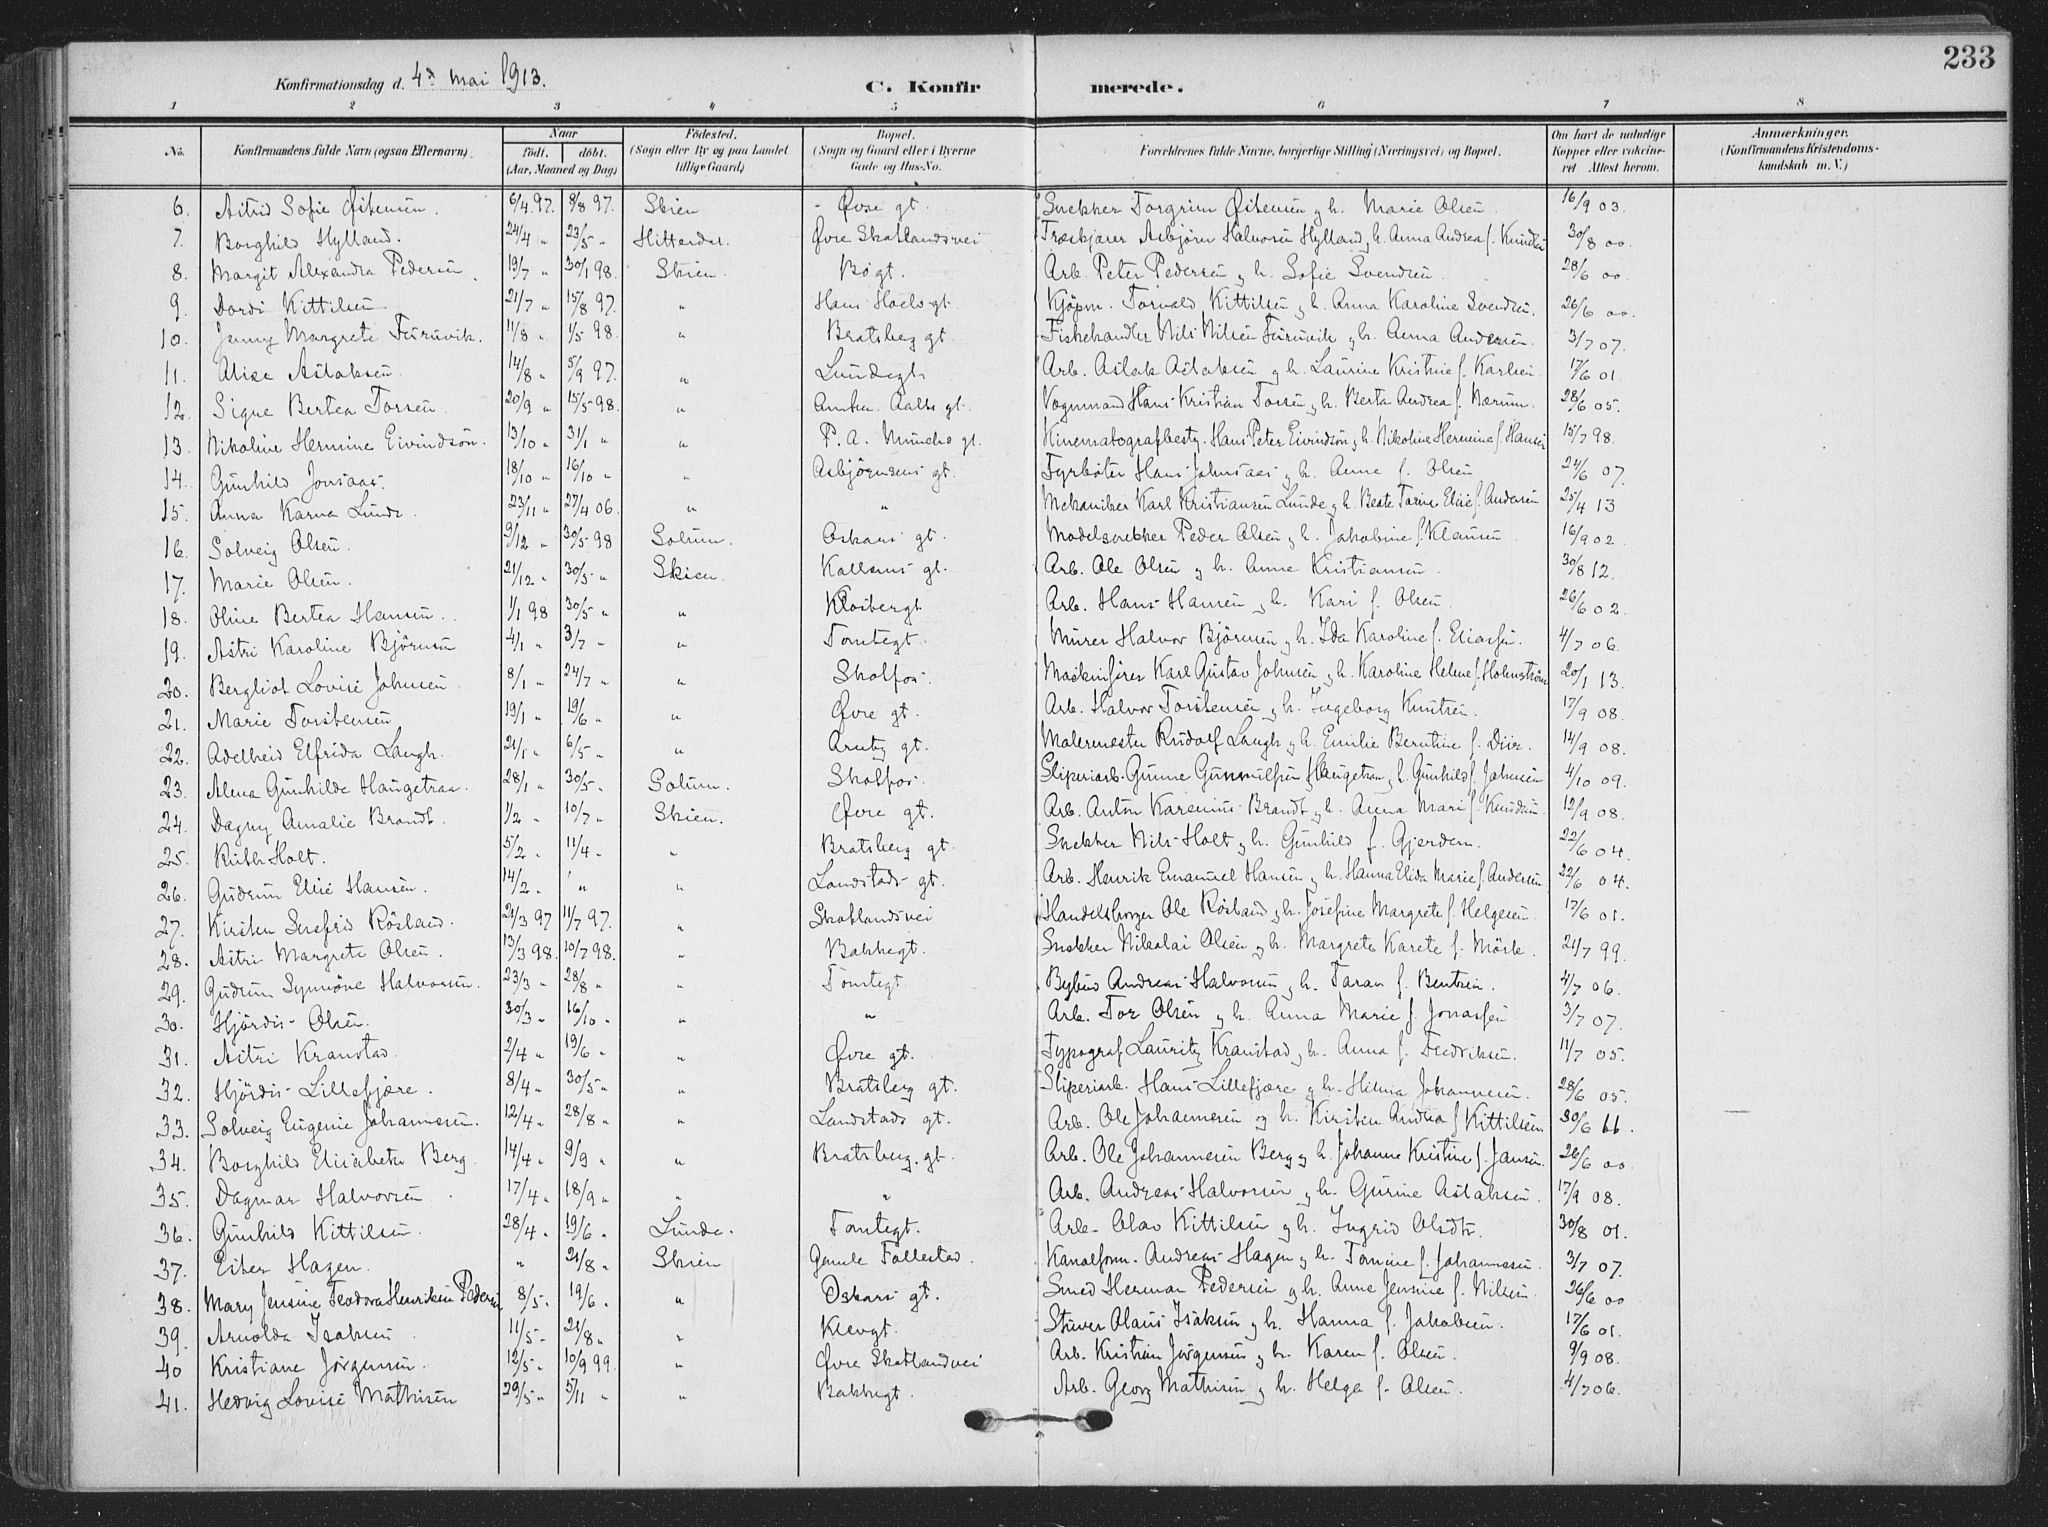 233
Konfirmationsdag d. 4de mai 1913.
C. Konfirmerede.
1 2 3 4 5 6 7 8
No. Konfirmandens fulde Navn (ogsaa Efternavn). Naar födt. döbt. (Aar, Maaned og Dag) Födested. (Sogn eller By og paa Landet tillige Gaard) Bopæl. (Sogn og Gaard eller i Byerne Gade og Hus-No. Forældrenes fulde Navne, borgerlige Stilling (Næringsvei) og Bopæl. Om havt de naturlige Kopper eller vakcineret Attest herom. Anmærkninger. (Konfirmandens Kristendomskundskab m. V.)
6. Astrid Sofie Östensen. 6/4 97. 8/8 97. Skien Øvre gt. Snekker Torgrim Östensen g h. Marie Olsen. 16/9 03.
7. Borghild Hylland. 24/4 " 23/5 " Hitterdal. Øvre Skotlandsvei Træskjærer Asbjørn Halvorsen Hylland g h. Anna Andrea f. Knudsen 30/8 00.
8. Margit Alexandra Pedersen. 19/7 " 30/1 98. Skien. Bøgt. Arb. Peter Pedersen g h. Sofie Svendsen. 28/6 00.
9. Dordi Kittilsen 21/7 " 15/8 97. " Hans Houls gt. Kjöpm. Torvald Kittilsen g h. Anna Karoline Svendsen. 26/6 00.
10. Jenny Margrete Furuvik. 11/8 " 1/5 98. " Bratsberg gt. Fiskehandler Nils Nilsen Furuvik g h. Anna Andersen. 3/7 07.
11. Alise Aslaksen. 14/8 " 5/9 97. " Lundegt. Arb. Aslak Aslaksen g h. Laurine Kristine f. Karlsen. 17/6 01.
12. Signe Bertea Torsen. 20/9 " 15/5 98. " Amtm. Aalls gt. Vognmand Hans Kristian Torsen g h. Berta Andrea f. Nærum. 28/6 05.
13. Nikoline Hermine Eivindsön. 13/10 " 31/1 " " P. A. Munchs gt. Kinematografbesty. Hans Peter Eivindsön g h. Nikoline Hermine f. Hansen 15/7 98.
14. Gunhild Jonsaas. 18/10 " 16/10 " " Asbjörnsens gt. Fyrböter Hans Johnsaas g h. Anne f. Olsen 24/6 07.
15. Anna Karna Lunde. 23/11 " 27/4 06. " " Mekaniker Karl Kristiansen Lunde g h. Beate Tarine Elise f. Andersen 25/4 13
16. Solveig Olsen. 9/12 " 30/5 98 Solum. Oskars gt. Modelsnekker Peder Olsen g h. Jakobine f. Klausen 16/9 02.
17. Marie Olsen. 21/12 " 30/5 " Skien. Kallums gt. Arb. Ole Olsen g h. Anne Kristiansen. 30/8 12.
18. Oline Bertea Hansen. 1/1 98 30/5 " " Klosbergt Arb. Hans Hansen g h. Kari f. Olsen. 26/6 02.
19. Astri Karoline Björnsen 4/1 " 3/7 " " Tomtegt. Murer Halvor Björnsen g h. Ida Karoline f. Eliassen. 4/7 06.
20. Bergliot Lovise Johnsen 8/1 " 24/7 " " Skotfos. Maskinfører Karl Gustav Johnsen g h. Karoline Helene f. Holmström 20/1 13.
21. Marie Torstensen 19/1 " 19/6 " " Øvre gt. Arb. Halvor Torstensen g h. Ingeborg Knutsen. 17/9 08.
22. Adelheid Elfrida Laugh. 21/1 " 6/5 " " Arntz gt. Malermester Rudolf Laugh g h. Emilie Berntine f. 14/9 08.
23. Alma Gunhilde Haugetraa. 28/1 " 30/5 " Solum. Skotfos. Sliperiarb. Gunne Gunnulfsen Haugetraa g h. Gunhild f. Johnsen 4/10 09.
24. Dagny Amalie Brandt. 1/2 " 10/7 " Skien. Øvre gt. Arb. Anton Karenius Brandt g h. Anna Mari f. Knudsen. 12/9 08.
25. Ruth Holt. 5/2 " 11/4 " " Bratsberg gt. Snekker Nils Holt g h. Gunhild f. Gjerden. 22/6 04.
26. Gudrun Elise Hansen. 14/2 " " " Landstads gt. Arb. Henrik Emanuel Hansen g h. Hanna Elida Marie f. Andersen 22/6 04.
27. Kirsten Snefrid Rösland. 21/3 97 11/7 97. " Skotlandsvei Handelsborger Ole Rösland g h. Josefine Margrete f. Helgesen. 17/6 01.
28. Astri Margrete Olsen. 13/3 98. 10/7 98. " Bakkegt. Snekker Nikolai Olsen g h. Margrete Karete f. Mörk. 21/7 99.
29. Gudrun Synnöve Halvorsen. 23/3 " 28/8 " " Tomtegt. Bybud Andreas Halvorsen g h. Taran f. Bentsen. 4/7 06.
30. Hjördis Olsen. 30/3 " 16/10 " " " Arb. Tor Olsen g h. Anna Marie f. Jonassen 3/7 07.
31. Astri Kranstad. 2/4 " 19/6 " " Øvre gt. Typograf Lauritz Kranstad g h. Anna f. Fredriksen. 11/7 05.
32. Hjördis Lillefjære. 8/4 " 30/5 " " Bratsberg gt. Sliperiarb. Hans Lillefjære g h. Hilma Johannesen. 28/6 05.
33. Solveig Eugenie Johannesen. 12/4 " 28/8 " " Landstads gt. Arb. Ole Johannesen og h. Kirsten Andrea f Kittilsen 30/6
34. Borghild Elisabeth Berg. 14/4 " 9/9 " " Bratsberg. gt. Arb. Ole Johannesen Berg g h. Johanne Kristine f. Jansen. 26/6 00.
35. Dagmar Halvorsen. 17/4 " 18/9 " " " Arb. Andreas Halvorsen g h. Gurine Aslaksen. 17/9 08.
36. Gunhild Kittilsen. 28/4 " 19/6 " Lunde. Tomtegt. Arb. Olav Kittilsen g h. Ingrid Olsdtr. 30/8 01.
37. Ester Hagen. " 21/8 " Skien Gamle Falkestad. Kanalform. Andreas Hagen g h. Tomine f. Johannesen. 3/7 07.
38. Mary Jensine Teodora Henriksen Pedersen. 8/5 " 19/6 " " Oskars gt. Smed Herman Pedersen g h. Anne Jensine f. Nilsen. 26/6 00
39. Arnolda Isaksen. 11/5 " 21/8 " " Klevgt. Stuver Olaus Isaksen g h. Hanna f. Jakobsen. 17/6 01.
40 Kristiane Jörgensen. 12/5 " 10/9 99. " Øvre Skotlandvei Arb. Kristian Jörgensen g h. Karen f. Olsen. 9/9 08.
41. Hedvig Lovise Mathisen 29/5 " 5/11 " " Bakkegt. Arb. Georg Mathisen g h. Helga f. Olsen. 4/7 06.